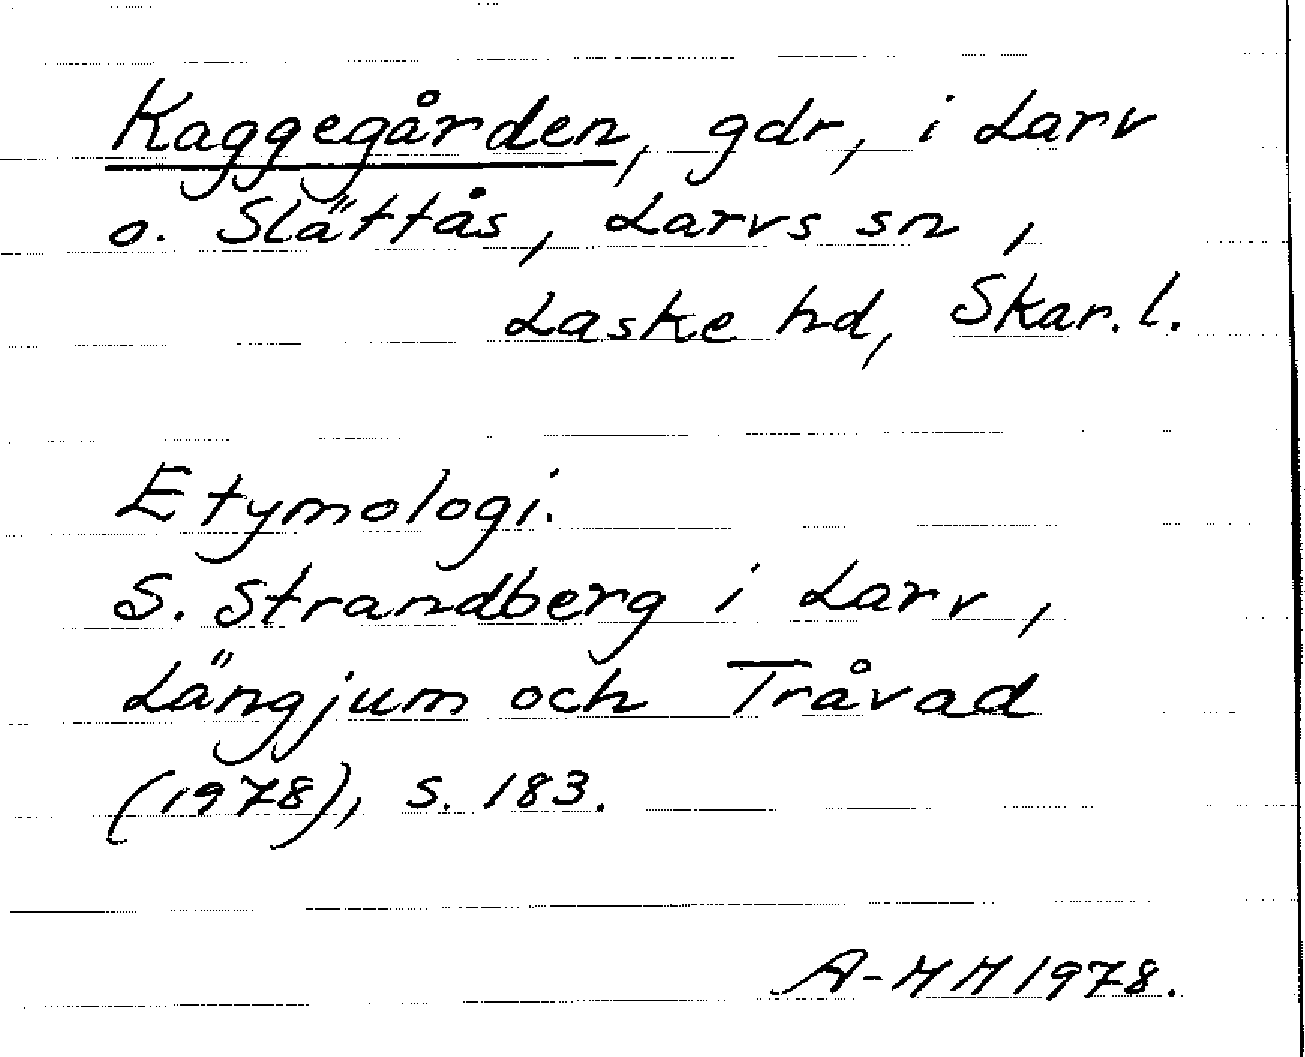 Kaggegården, gdr, i Larv
o. Slättås, Larvs sn,
Laske hd, Skar. l.
Etymologi.
S. Strandberg i Larv,
Längjum och Tråvad
(1978), s. 183.
A-HH 1978.